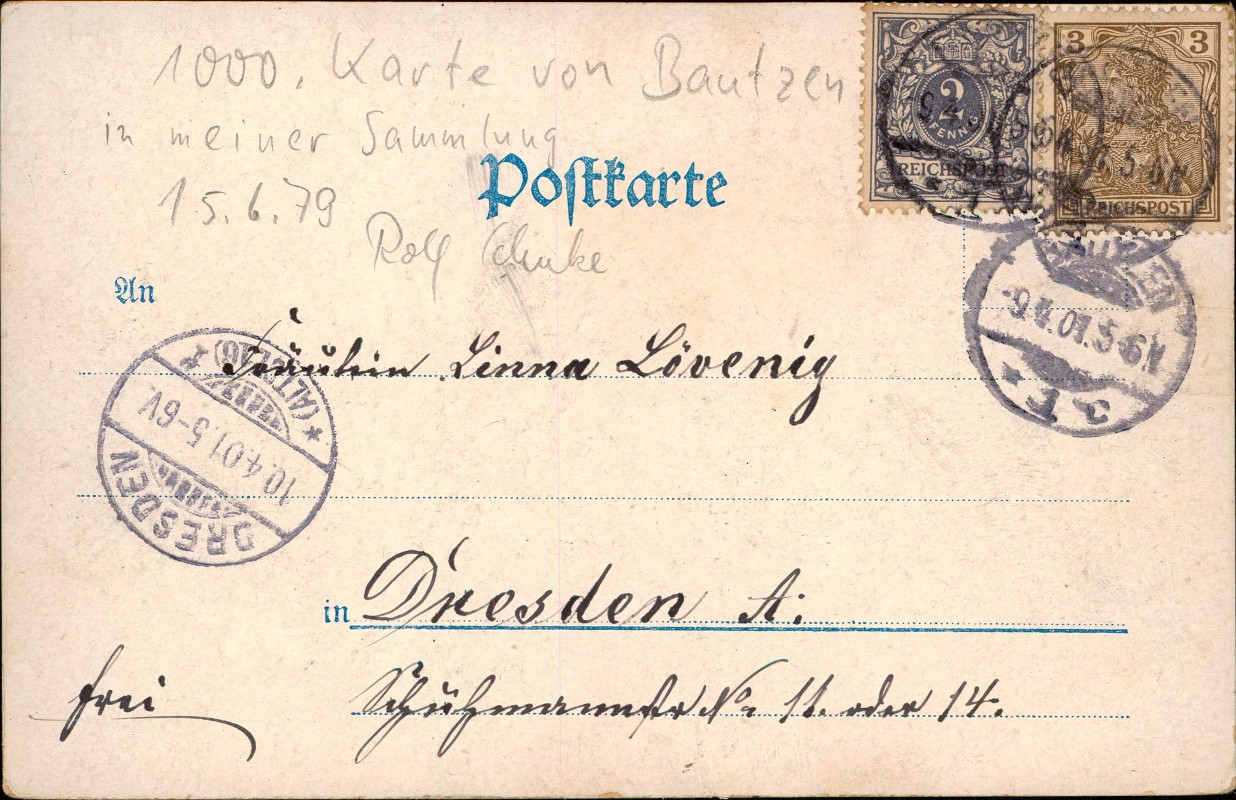 1000. Karte von Bautzen
in meiner Sammlung
15.6.79
Rolf
Postkarte
2
PFENNIG
REICHSPOST
3 3
REICHSPOST
BAUTZEN
9.4.01.5-6N.
An
Fräulein Linna Lövenig
DRESDEN
(ALTST.16)
10.4.01.5-6V.
in Dresden A:
frei
No 11. oder 14.